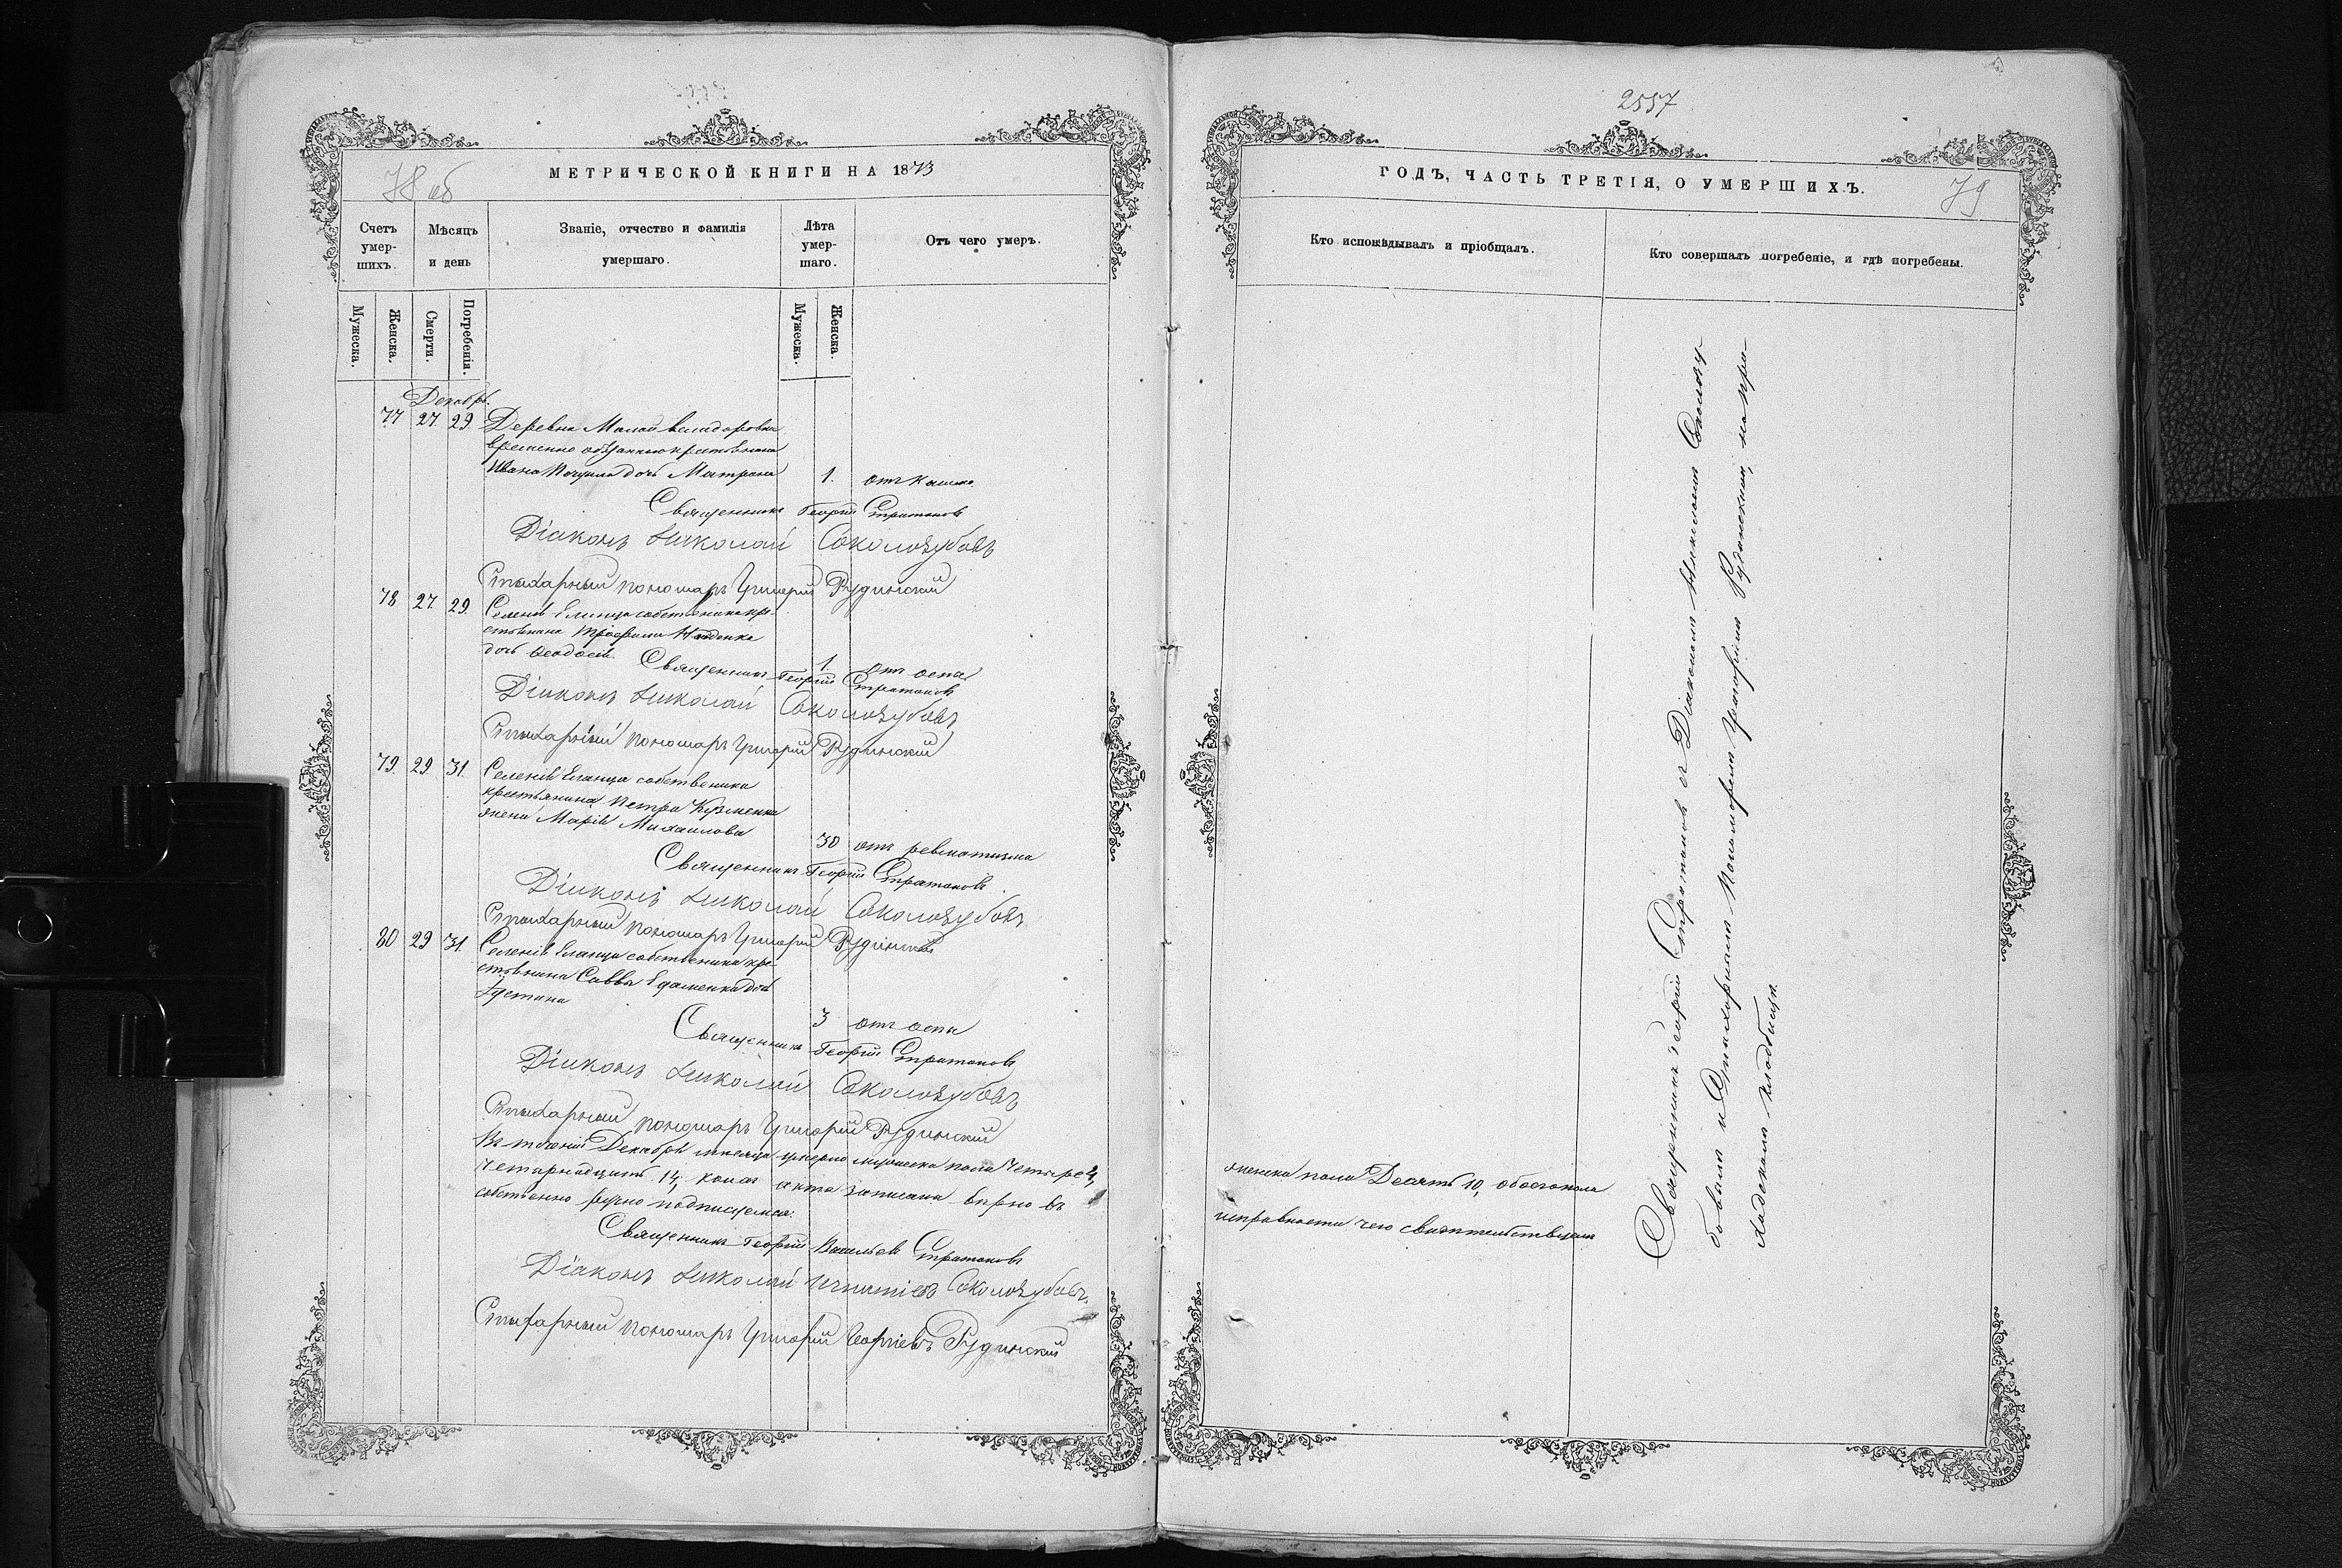 78 об
МЕТРИЧЕСКОЙ КНИГИ НА 1873
Счетъ умер-шихъ.
Мѣсяцъ и день
Званіе, отчество и фамилія умершаго.
Лѣта умер-шаго.
Отъ чего умеръ.
Мужеска.
Женска.
Смерти.
Погребенія.
Мужеска.
Женска.
Декабрь.
77 27 29 Деревни Малой
временно обязаннаго крестьянина
Ивана дочь Матрона 1. отъ кашля
Священникъ Георгій Стратоновъ
Діаконъ Николай Соколозубовъ
Стихарный пономарь Григорій Рудинскій
78 27 29 Селенія Еланца собственника кре-
стьянина Трофима Найденка
дочь Феодосія. 1. отъ оспы
Священникъ Георгій Стратоновъ
Діаконъ Николай Соколозубовъ
Стихарный пономарь Григорій Рудинскій
79. 29 31. Селенія Еланца собственника
крестьянина Петра Кузменка
жена Марія Михаилова 30 отъ ревматизма
Священникъ Георгій Стратоновъ.
Діаконъ Николай Соколозубовъ
Стихарный пономарь Григорій Рудинскій
80 29 31 Селенія Еланца собственника кре-
стьянина Саввы дочь
Іустина 3 отъ оспы
Священникъ Георгій Стратоновъ
Діаконъ Николай Соколозубовъ
Стихарный пономарь Григорій Рудинскій
Въ теченіи Декабря мѣсяца умерло мужеска пола Четыре 4,
четырнадцать 14, коихъ акта записана вѣрно въ
собственно ручно подписуемся.
Священникъ Георгій Васильевъ Стратоновъ
Діаконъ Николай Игнатіевъ Соколозубовъ.
Стихарный пономарь Григорій Георгіевъ Рудинскій
2557
ГОДЪ, ЧАСТЬ ТРЕТІЯ, О УМЕРШИХЪ.
79
Кто исповѣдывалъ и пріобщалъ.
Кто совершалъ погребеніе, и гдѣ погребены.
женска пола Десять 10, обоего пола
исправности чего свидѣтельствуемъ
Священникъ Георгій Стратоновъ съ Діакономъ Николаемъ Соколозу-
бовымъ и Стихарнымъ Пономаремъ Григоріемъ Рудинскимъ, на при-
ходскомъ кладбищѣ.